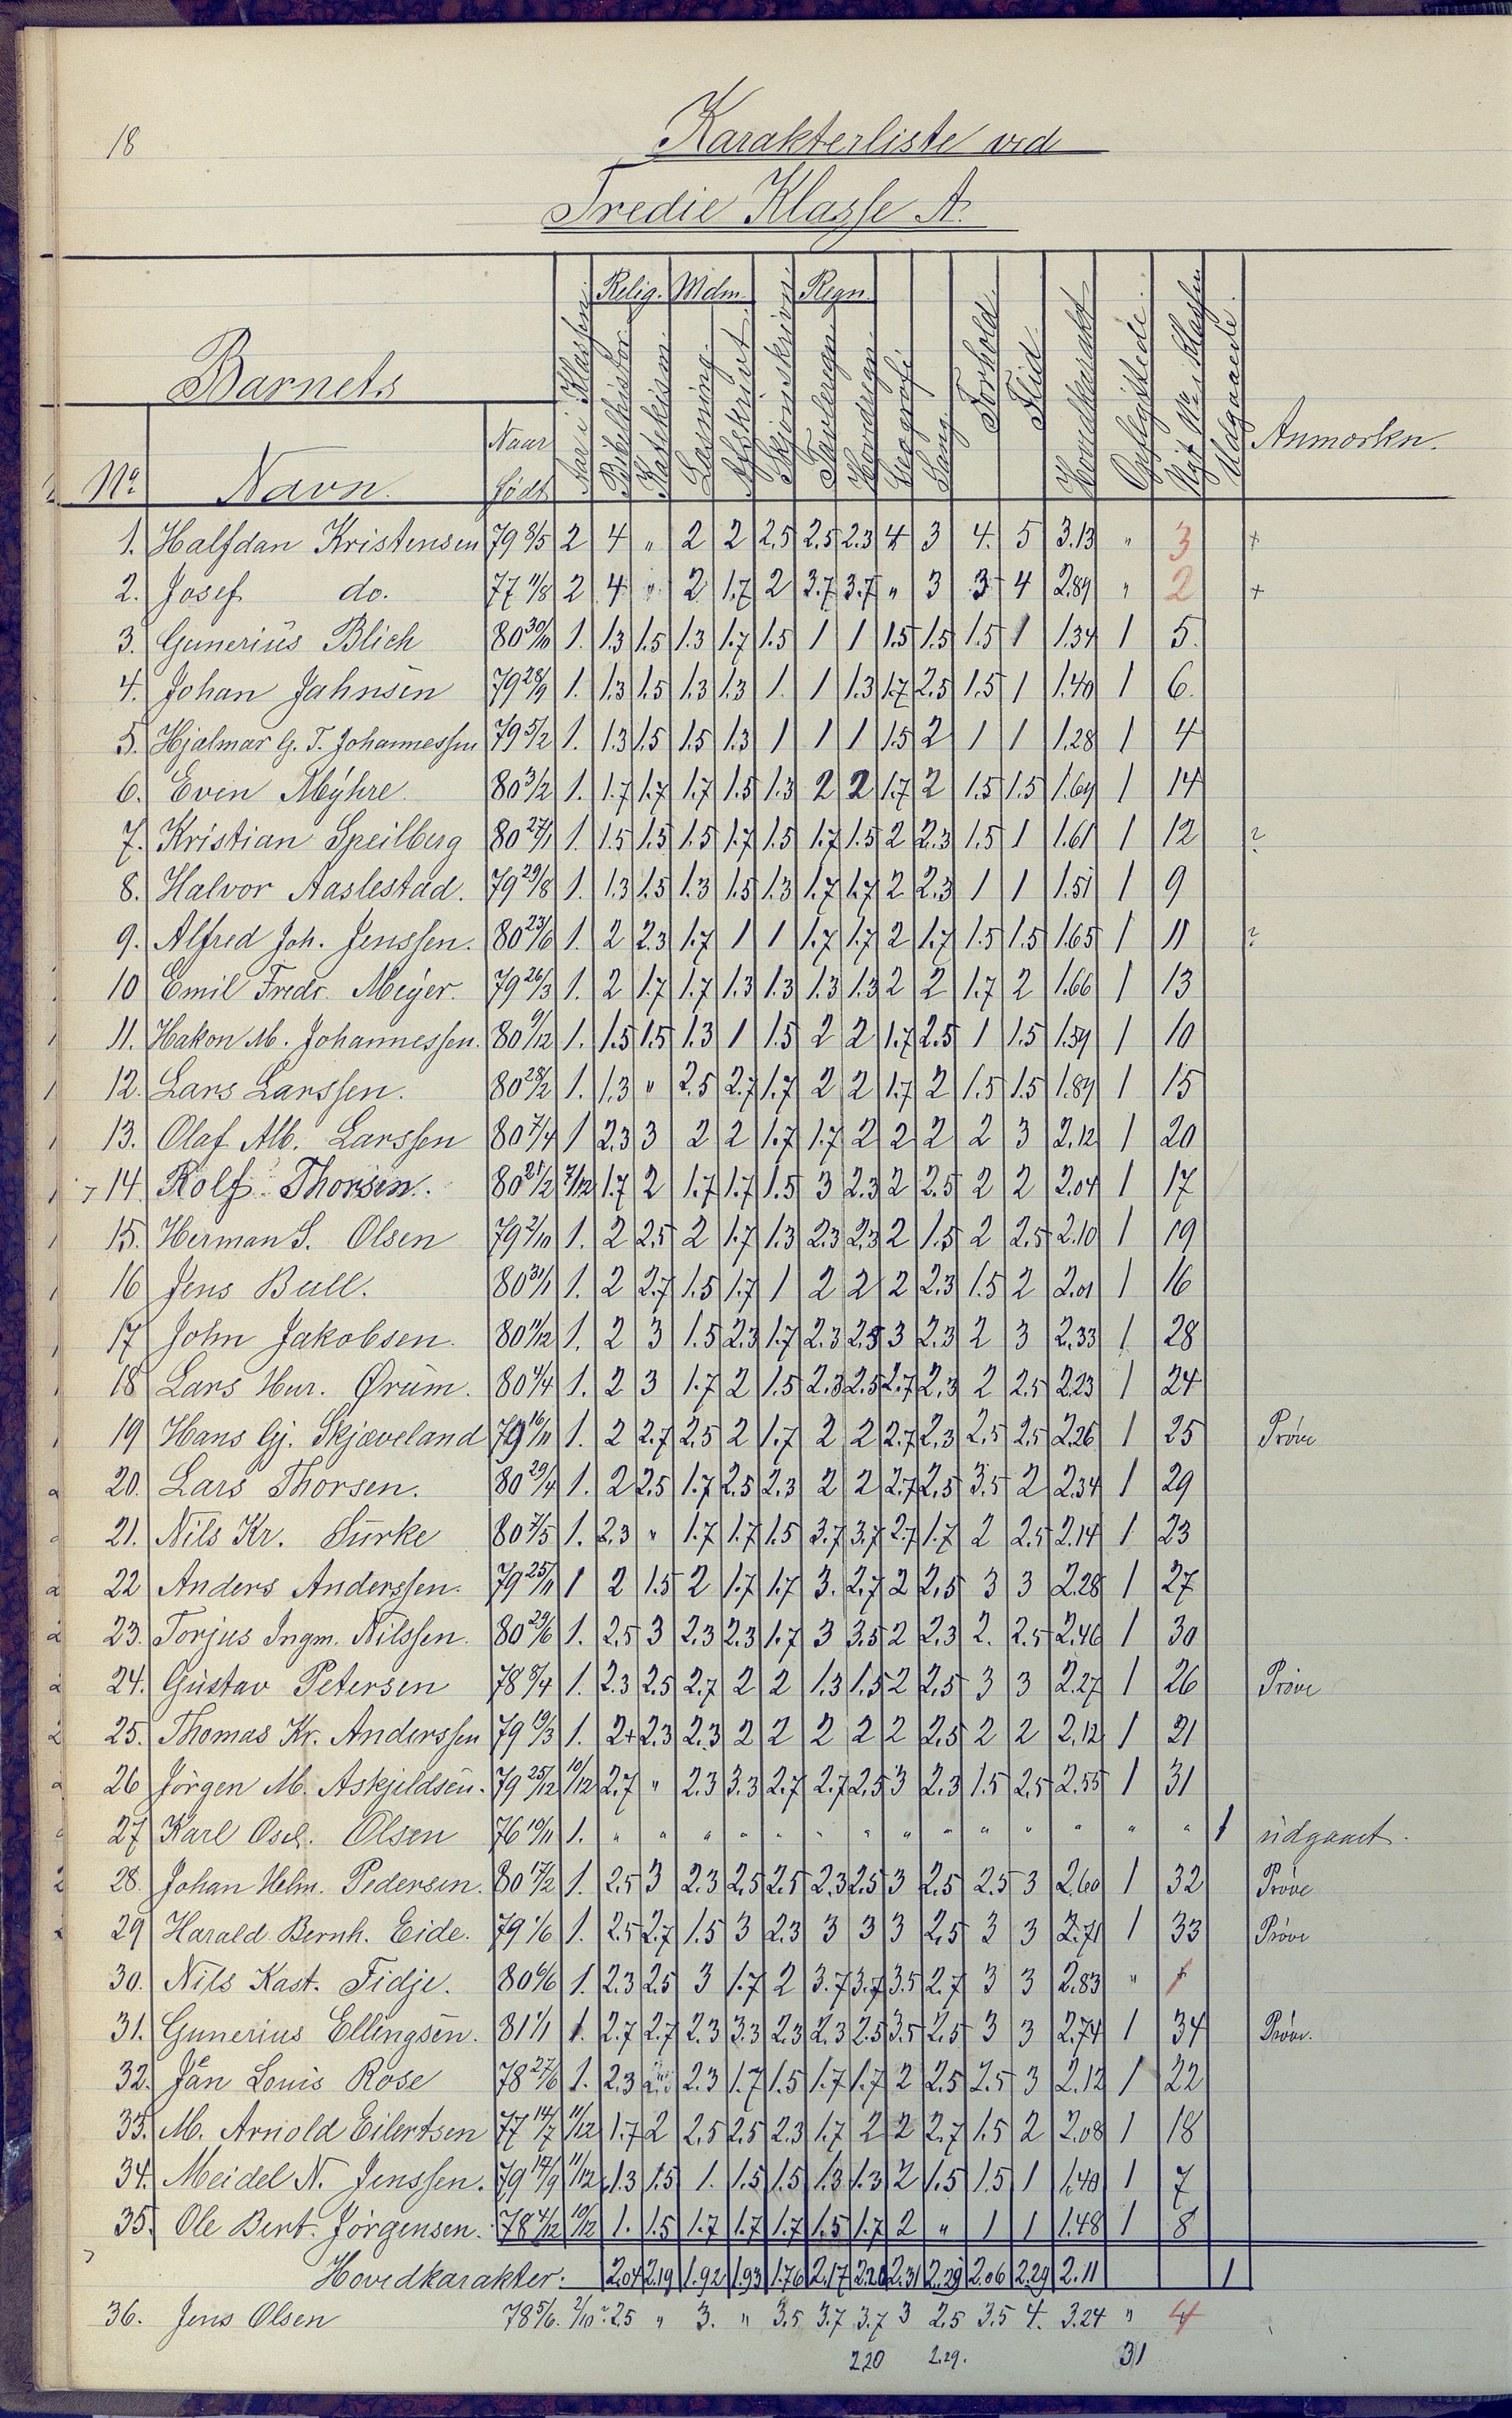 18
Karakterliste ved
Tredie Klasse A.
Relig. Mdm. Regn.
Barnets
No. Navn. Naar født Aar i Klassen. Bibelhistor. Katekism. Læsning. Afskrivt. Skjønskrivn. Tavleregn. Hovedregn. Geografi. Sang. Forhold. Flid. Hovedkarakt. Opflyttede. Nyt No. i Klassen Udgaaede. Anmærkn.
1. Halfdan Kristensen 79 8/5 2 4 " 2 2 2.5 2.5 2.3 4 3 4. 5 3.13 " 3 +
2. Josef do. 77 11/8 2 4 " 2 1.7 2 3.7 3.7 " 3 3 4 2.89 " 2 +
3. Gunerius Blich 80 30/11 1. 1.3 1.5 1.3 1.7 1.5 1 1 1.5 1.5 1.5 1 1.34 1 5.
4. Johan Jahnsen 79 28/9 1. 1.3 1.5 1.3 1.3 1. 1 1.3 1.7 2.5 1.5 1 1.40 1 6.
5. Hjalmar G. T. Johannessen 79 5/2 1. 1.3 1.5 1.5 1.3 1 1 1 1.5 2 1 1 1.28 1 4
6. Even Myhre. 80 3/2 1. 1.7 1.7 1.7 1.5 1.3 2 2 1.7 2 1.5 1.5 1.69 1 14
7. Kristian Speilberg 80 27/1 1. 1.5 1.5 1.5 1.7 1.5 1.7 1.5 2 2.3 1.5 1 1.61 1 12 ?
8. Halvor Aaslestad. 79 29/8 1. 1.3 1.5 1.3 1.5 1.3 1.7 1.7 2 2.3 1 1 1.51 1 9
9. Alfred Joh. Jenssen. 80 23/6 1. 2 2.3 1.7 1 1 1.7 1.7 2 1.7 1.5 1.5 1.65 1 11 ?
10 Emil Fredr. Meyer. 79 26/3 1. 2 1.7 1.7 1.3 1.3 1.3 1.3 2 2 1.7 2 1.66 1 13
11. Hakon M. Johannessen. 80 9/12 1. 1.5 1.5 1.3 1 1.5 2 2 1.7 2.5 1 1.5 1.59 1 10
12. Lars Larssen. 80 28/2 1. 1.3 " 2.5 2.7 1.7 2 2 1.7 2 1.5 1.5 1.89 1 15
13. Olaf Alb. Larssen 80 7/4 1 2.3 3 2 2 1.7 1.7 2 2 2 2 3 2.12 1 20
14 Rolf Thorsen. 80 21/2 7/12 1.7 2 1.7 1.7 1.5 3 2.3 2 2.5 2 2 2.04 1 17
15. Herman S. Olsen 79 2/10 1. 2 2.5 2 1.7 1.3 2.3 2.3 2 1.5 2 2.5 2.10 1 19
16 Jens Bull. 80 31/1 1. 2 2.7 1.5 1.7 1 2 2 2 2.3 1.5 2 2.01 1 16
17 John Jakobsen. 80 11/12 1. 2 3 1.5 2.3 1.7 2.3 2.3 3 2.3 2 3 2.33 1 28
18 Lars Hnr. Ørum. 80 4/4 1. 2 3 1.7 2 1.5 2.3 2.5 2.7 2.3 2 2.5 2.23 1 24
19 Hans Gj. Skjæveland 79 16/11 1. 2 2.7 2.5 2 1.7 2 2 2.7 2.3 2.5 2.5 2.26 1 25 Prøve
20. Lars Thorsen. 80 29/4 1. 2 2.5 1.7 2.5 2.3 2 2 2.7 2.5 3.5 2 2.34 1 29
21. Nils Kr. Surke 80 7/5 1. 2.3 " 1.7 1.7 1.5 3.7 3.7 2.7 1.7 2 2.5 2.14 1 23
22 Anders Anderssen. 79 25/11 1 2 1.5 2 1.7 1.7 3. 2.7 2 2.5 3 3 2.28 1 27
23. Torjus Ingm. Nilssen. 80 29/6 1. 2.5 3 2.3 2.3 1.7 3 3.5 2 2.3 2. 2.5 2.46 1 30
24. Gustav Petersen 78 8/4 1. 2.3 2.5 2.7 2 2 1.3 1.5 2 2.5 3 3 2.27 1 26 Prøve
25. Thomas Kr. Anderssen 79 19/3 1. 2+ 2.3 2.3 2 2 2 2 2 2.5 2 2 2.12 1 21
26 Jørgen M. Askjeldsen. 79 25/12 10/12 2.7 " 2.3 3.3 2.7 2.7 2.5 3 2.3 1.5 2.5 2.55 1 31
27 Karl Osc. Olsen 76 10/11 1. " " " " " " " " " " " " " " 1 udgaaet.
28. Johan Helm. Pedersen. 80 17/2 1. 2.5 3 2.3 2.5 2.5 2.3 2.5 3 2.5 2.5 3 2.60 1 32 Prøve
29 Harald Bernh. Eide. 79 1/6 1. 2.5 2.7 1.5 3 2.3 3 3 3 2.5 3 3 2.71 1 33 Prøve
30. Nils Kast. Fidje. 80 6/6 1. 2.3 2.5 3 1.7 2 3.7 3.7 3.5 2.7 3 3 2.83 " 1
31. Gunerius Ellingsen. 81 1/1 1. 2.7 2.7 2.3 3.3 2.3 2.3 2.5 3.5 2.5 3 3 2.74 1 34 Prøve.
32. Jan Louis Rose 78 27/6 1. 2.3 2.3 1.7 1.5 1.7 1.7 2 2.5 2.5 3 2.12 1 22
33. M. Arnold Eilertsen 77 14/7 11/12 1.7 2 2.5 2.5 2.3 1.7 2 2 2.7 1.5 2 2.08 1 18
34. Meidel N. Jenssen. 79 17/9 11/12 1.3 1.5 1. 1.5 1.5 1.3 1.3 2 1.5 1.5 1 1.40 1 7
35. Ole Bert. Jørgensen. 78 4/12 10/12 1. 1.5 1.7 1.7 1.7 1.5 1.7 2 " 1 1 1.48 1 8
Hovedkarakter: 2.04 2.19 1.92 1.93 1.76 2.17 2.20 2.31 2.29 2.06 2.29 2.11 1
36. Jens Olsen 78 5/6. 2/10 2.5 " 3. " 3.5 3.7 3.7 3 2.5 3.5 4. 3.24 " 4
2.20 2.29. 31